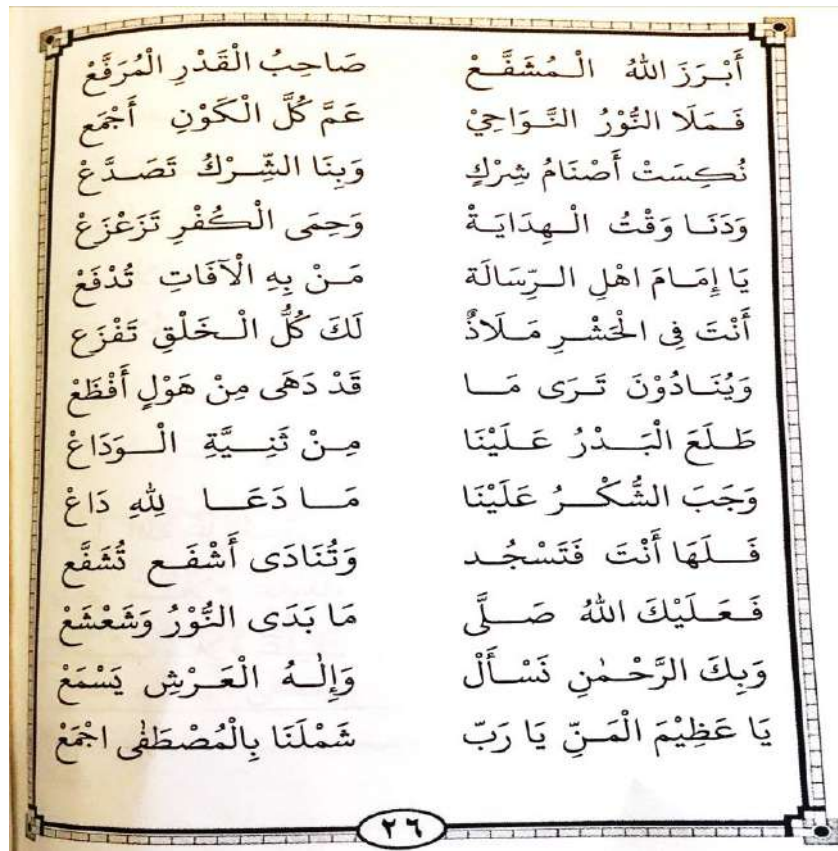 أَبْرَزَ اللهُ الْـمُشَفَّـعْ صَاحِبُ الْقَدْرِ الْمُرَفَّعْ
فَـمَلَا النُّوْرُ النَّـوَاحِيْ عَمَّ كُلَّ الْكَوْنِ أَجْمَع
نُكِسَتْ أَصْنَامُ شِرْكٍ وَبِنَا الشِّـرْكُ تَصَـدَّعْ
وَدَنَـا وَقْتُ الْـهِدَايَـةْ وَحِمَى الْكُفْرِ تَزَعْزَعْ
يَا إِمَـامَ اهْلِ الـرِّسَالَة مَـنْ بِهِ الْآفَاتِ تُدْفَعْ
أَنْتَ فِى الْحَشْـرِ مَـلَاذٌ لَكَ كُلُّ الْـخَلْقِ تَفْزَع
وَيُنَـادُوْنَ تَـرَى مَـا قَدْ دَهَى مِنْ هَوْلٍ أَفْظَعْ
طَـلَعَ الْبَـدْرُ عَـلَيْنَا مِـنْ ثَنِـيَّةِ الْـوَدَاعْ
وَجَبَ الشُّكْـرُ عَلَيْنَا مَـا دَعَـا لِلّٰهِ دَاعْ
فَـلَهَا أَنْتَ فَتَسْجُـد وَتُنَادَى أَشْفَـع تُشَفَّع
فَـعَـلَيْكَ اللهُ صَـلَّى مَا بَدَى النُّوْرُ وَشَعْشَعْ
وَبِكَ الرَّحْـمٰنِ نَسْـأَلْ وَإِلٰـهُ الْعَـرْشِ يَسْمَعْ
يَا عَظِيْمَ الْمَـنِّ يَا رَبّ شَمْلَنَا بِالْمُصْطَفٰى اجْمَعْ
٢٦